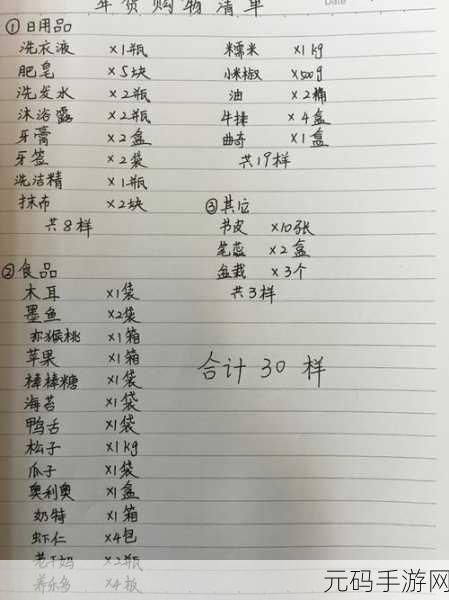 年货购物清单
Date
①日用品
洗衣液 ×1瓶
肥皂 ×5块
洗发水 ×2瓶
沐浴露 ×2瓶
牙膏 ×2盒
牙签 ×2袋
洗洁精 ×1瓶
抹布 ×2块
共8样
②食品
木耳 ×1袋
墨鱼 ×2袋
猕猴桃 ×1箱
苹果 ×1箱
棒棒糖 ×1袋
海苔 ×1袋
鸭舌 ×1袋
松子 ×1kg
瓜子 ×1袋
奥利奥 ×1盒
奶特 ×1箱
虾仁 ×4包
老干妈 ×2瓶
养乐多 ×4板
糯米 ×1kg
小米椒 ×500g
油 ×2桶
牛排 ×4盒
曲奇 ×1盒
共19样
③其它
书皮 ×10张
笔芯 ×2盒
盆栽 ×3个
共3样
合计30样
元码手游网